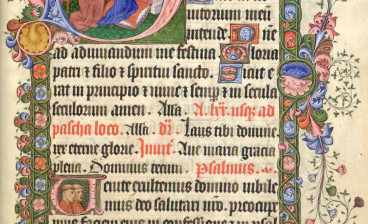 iutorium meū
intende. Dn̄e
ad adiuuandum me festina Gloria
patri & filio & spiritui sancto. Sicut e
rat in principio & nunc & semp & in secula
seculorum amen. Alla. A lxx. usq; ad
pascha loco. Alla. dr̄. Laus tibi domine
rex eterne glorie. Inuit. Aue maria gracia
plena. Dominus tecum. Psalmus.
Uenite exultemus domino iubile
mus deo salutari nr̄o. preocup